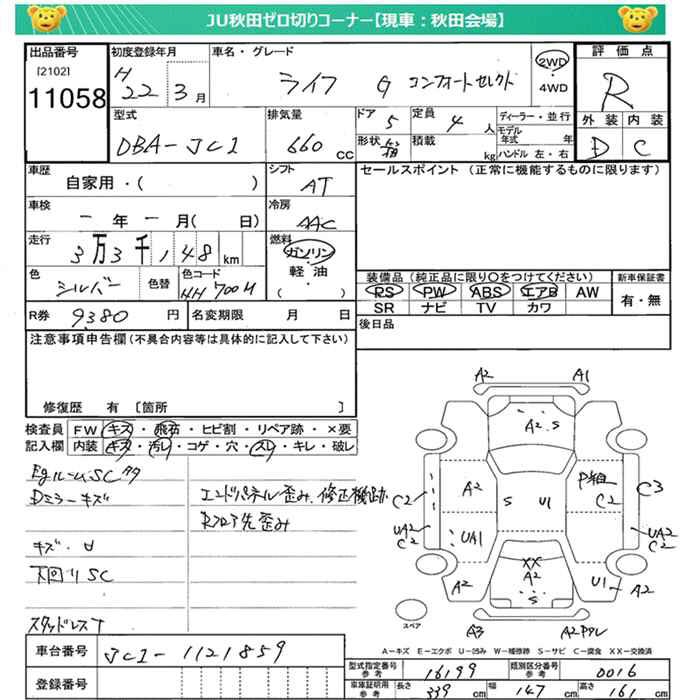 JU秋田ゼロ切りコーナー【現車：秋田会場】
出品番号 [2102] 11058
初度登録年月 H22年3月
車名・グレード ライフ G コンフォートセレクト
2WD・4WD
評価点 R
外装 D 内装 C
型式 DBA-JC1
排気量 660cc
ドア 5 定員 4人
形状 箱 積載 kg
ディーラー・並行
モデル年式 年
ハンドル 左・右
車歴 自家用・( )
シフト AT
セールスポイント (正常に機能するものに限ります)
車検 ー年ー月( 日)
冷房 AAC
走行 3万3千148km
燃料 ガソリン・軽油・( )
色 シルバー 色替
色コード NH700M
装備品 (純正品に限り〇をつけてください)
RS PW ABS エアB AW
SR ナビ TV カワ
新車保証書 有・無
R券 9380円 名変期限 月 日
後日品
注意事項申告欄(不具合内容等は具体的に記入して下さい)
修復歴 有 [箇所 ]
検査員記入欄
FW キズ・飛石・ヒビ割・リペア跡・×要
内装 キズ・汚レ・コゲ・穴・スレ・キレ・破レ
EgルームSC
Dミラーキズ
エンドパネル歪み、修正機跡
Rフロア先歪み
キズ・U
下回りSC
スタッドレスT
A2 A1
A2.S
A2 S U1 C2
C2 C3
UA2 C2 UA1 UA2 C2
XX A2 S
A2 U1 A2
スペア A3 A2
A－キズ E－エクボ U－凹み W－補修跡 S－サビ C－腐食 XX－交換済
車台番号 JC1-1121859
登録番号
型式指定番号 参考 16199 類別区分番号 参考 0016
車庫証明用 参考 長さ 339cm 幅 147cm 高さ 161cm